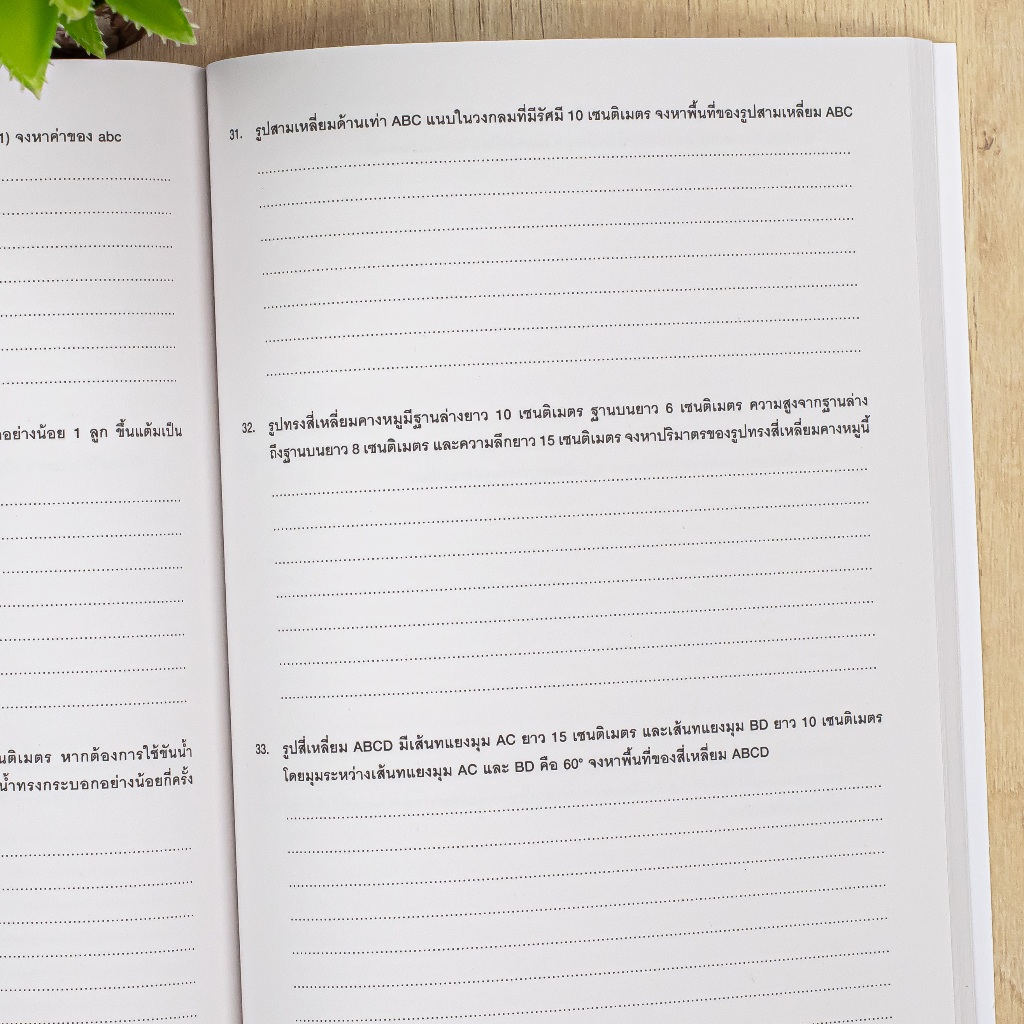 1) จงหาค่าของ abc
อย่างน้อย 1 ลูก ขึ้นแต้มเป็น
หากต้องการใช้ขันน้ำ
น้ำทรงกระบอกอย่างน้อยกี่ครั้ง
31. รูปสามเหลี่ยมด้านเท่า ABC แนบในวงกลมที่มีรัศมี 10 เซนติเมตร จงหาพื้นที่ของรูปสามเหลี่ยม ABC
32. รูปทรงสี่เหลี่ยมคางหมูมีฐานล่างยาว 10 เซนติเมตร ฐานบนยาว 6 เซนติเมตร ความสูงจากฐานล่าง
ถึงฐานบนยาว 8 เซนติเมตร และความลึกยาว 15 เซนติเมตร จงหาปริมาตรของรูปทรงสี่เหลี่ยมคางหมูนี้
33. รูปสี่เหลี่ยม ABCD มีเส้นทแยงมุม AC ยาว 15 เซนติเมตร และเส้นทแยงมุม BD ยาว 10 เซนติเมตร
โดยมุมระหว่างเส้นทแยงมุม AC และ BD คือ 60° จงหาพื้นที่ของสี่เหลี่ยม ABCD